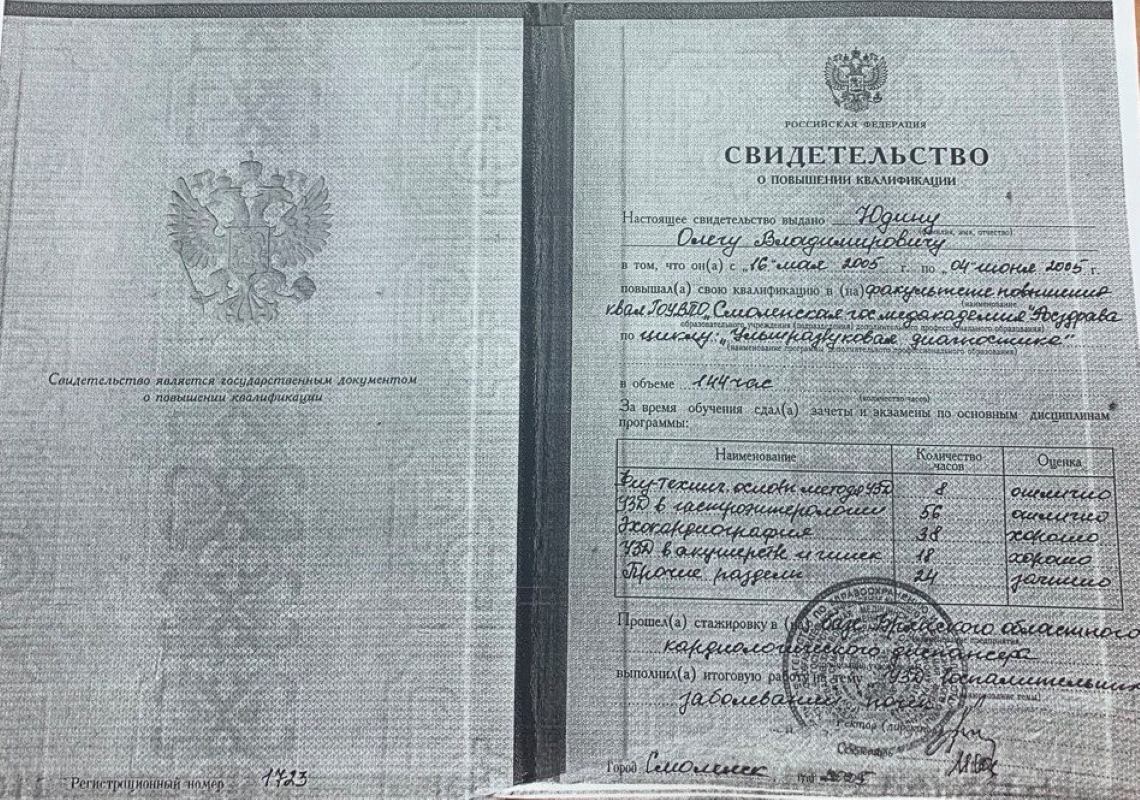 Свидетельство является государственным документом
о повышении квалификации
Регистрационный номер 1723
РОССИЙСКАЯ ФЕДЕРАЦИЯ
СВИДЕТЕЛЬСТВО
О ПОВЫШЕНИИ КВАЛИФИКАЦИИ
Настоящее свидетельство выдано Юдину
(фамилия, имя, отчество)
Олегу Владимировичу
в том, что он(а) с „16" мая 2005 г. по „04" июня 2005 г.
повышал(а) свою квалификацию в (на) факультете повышения
(наименование
квал ГОУВПО „Смоленская госмедакадемия" Росздрава
образовательного учреждения (подразделения) дополнительного профессионального образования)
по циклу: „Ультразвуковая диагностика"
(наименование программы дополнительного профессионального образования)
в объеме 144 час
(количество часов)
За время обучения сдал(а) зачеты и экзамены по основным дисциплинам
программы:
Наименование Количество часов Оценка
Физ-технич. основы метода УЗД 8 отлично
УЗД в гастроэнтерологии 56 отлично
Эхокардиография 38 хорошо
УЗД в акушерстве и гинек 18 хорошо
Прочие разделы 24 зачтено
Прошел(а) стажировку в (на) базе Брянского областного
кардиологического диспансера
выполнил(а) итоговую работу на тему „УЗД воспалительных
(наименование темы)
заболеваний почек"
Ректор
Секретарь
Город Смоленск год 2005